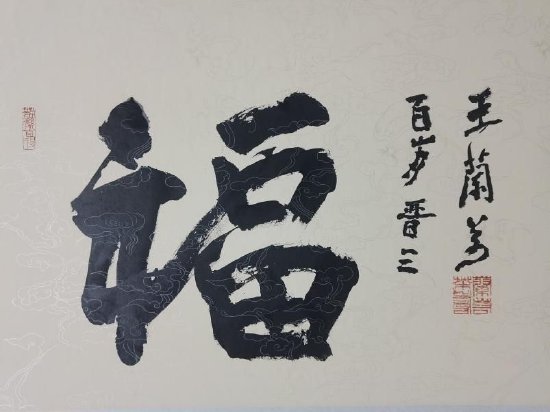 福
王蘭芳
百岁晋三